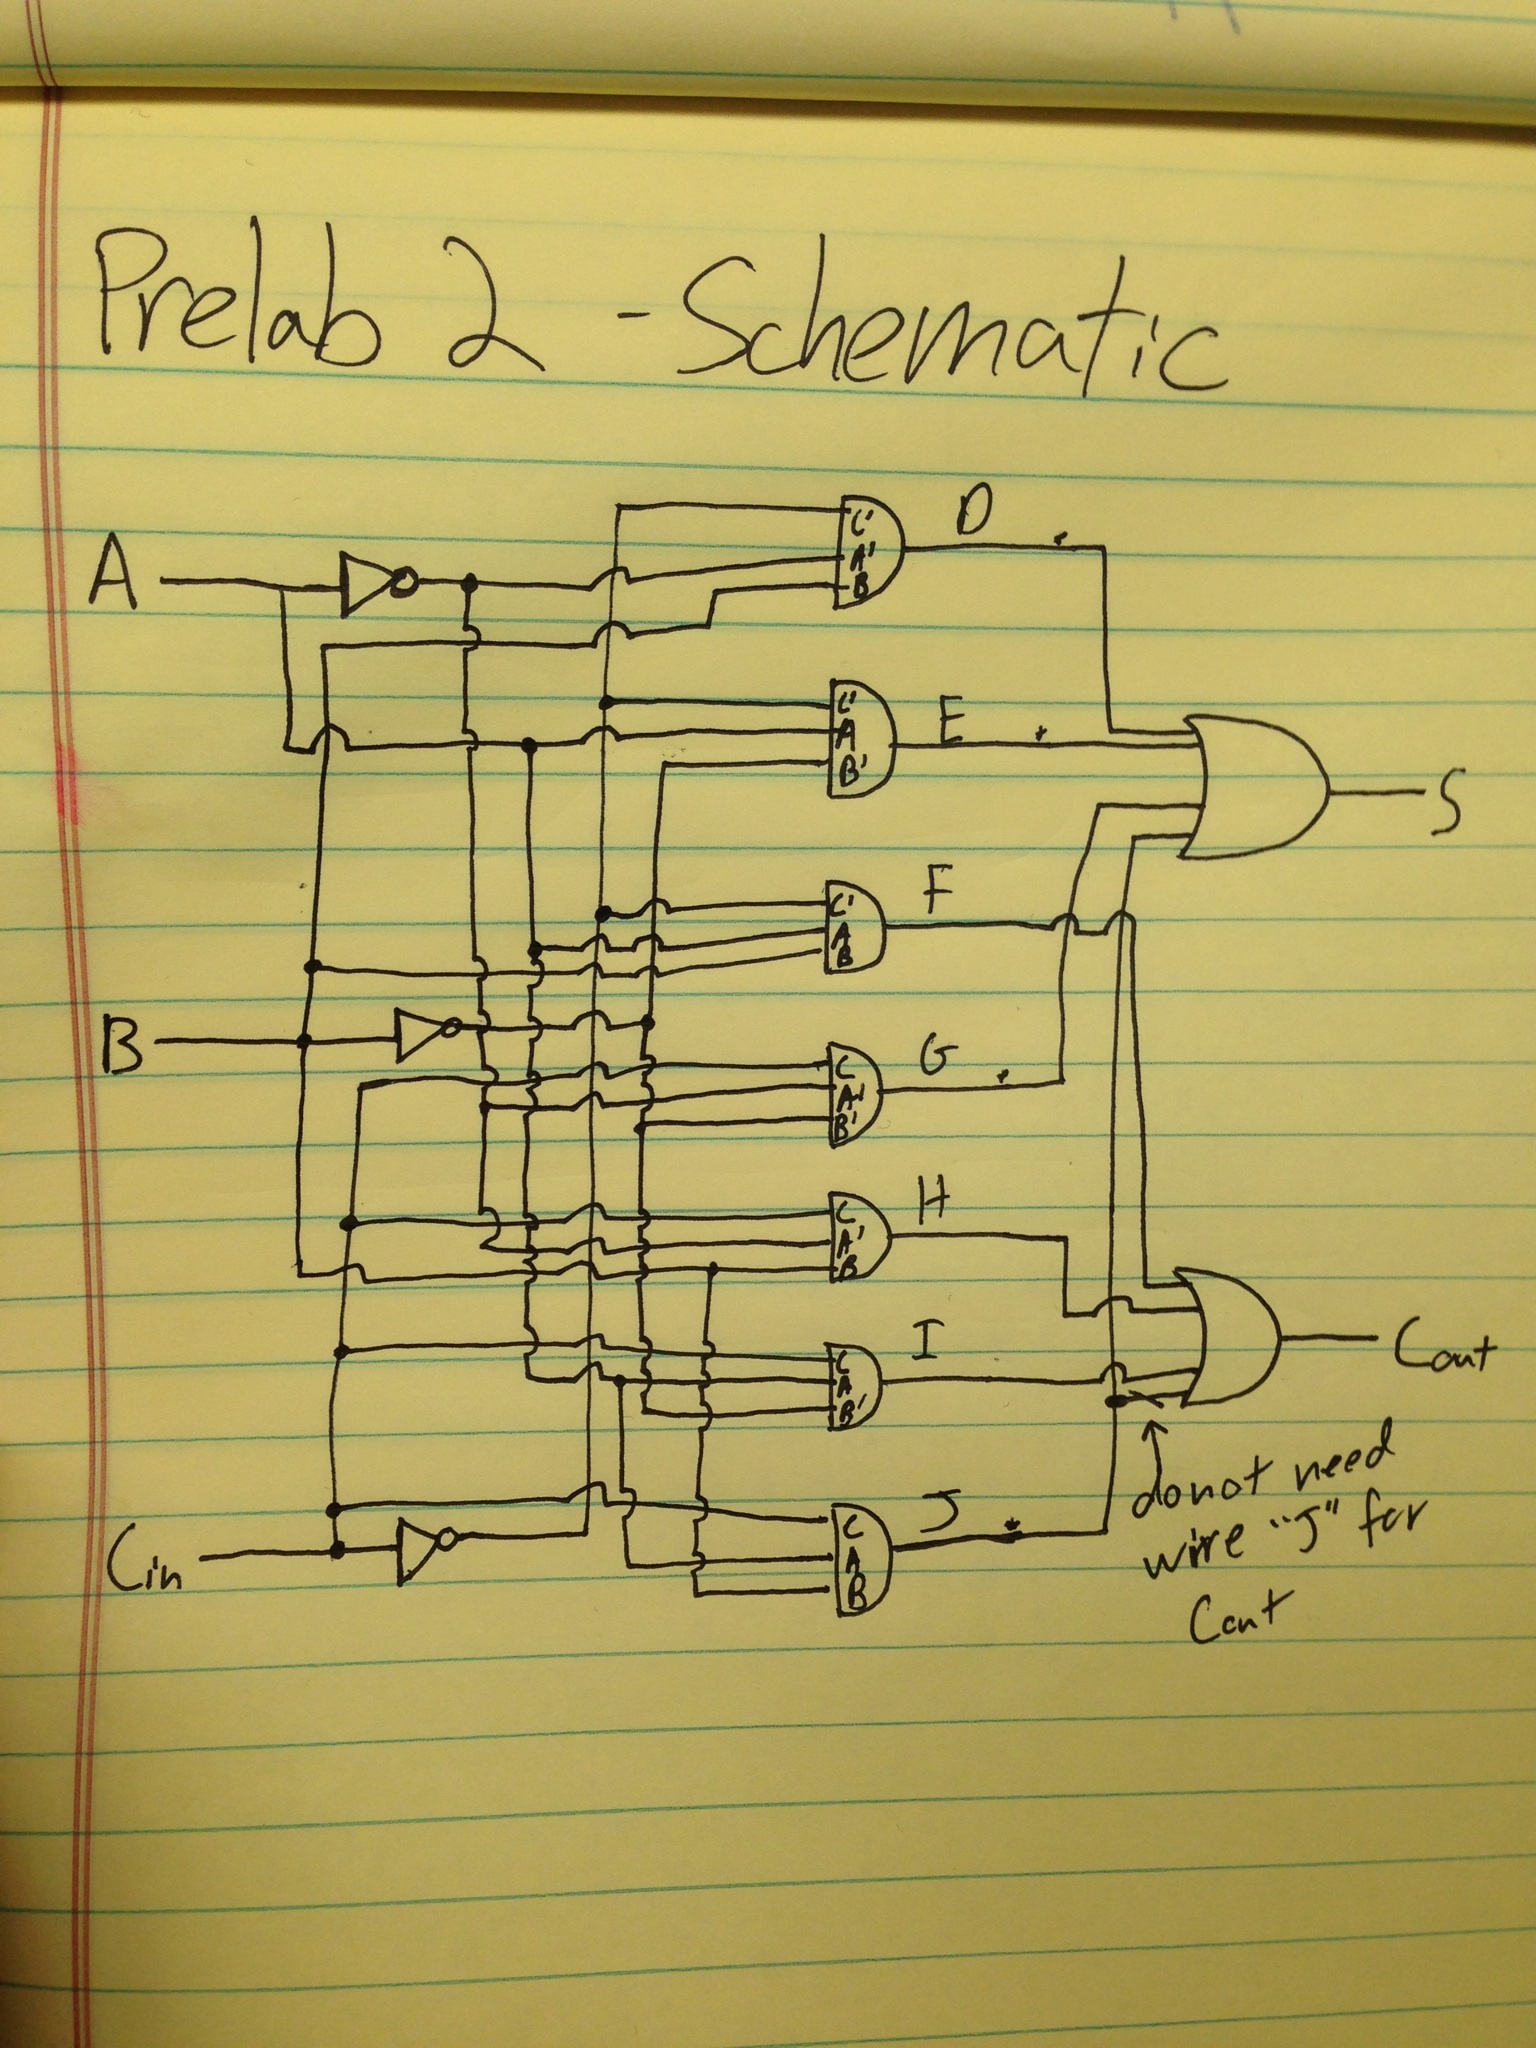 Prelab 2 - Schematic
A
C'
A'
B
D
C'
A
B'
E
S
C'
A
B
F
B
C
A'
B'
G
C
A'
B
H
C
A
B'
I
Cout
Cin
C
A
B
J
do not need
wire "J" for
Cout